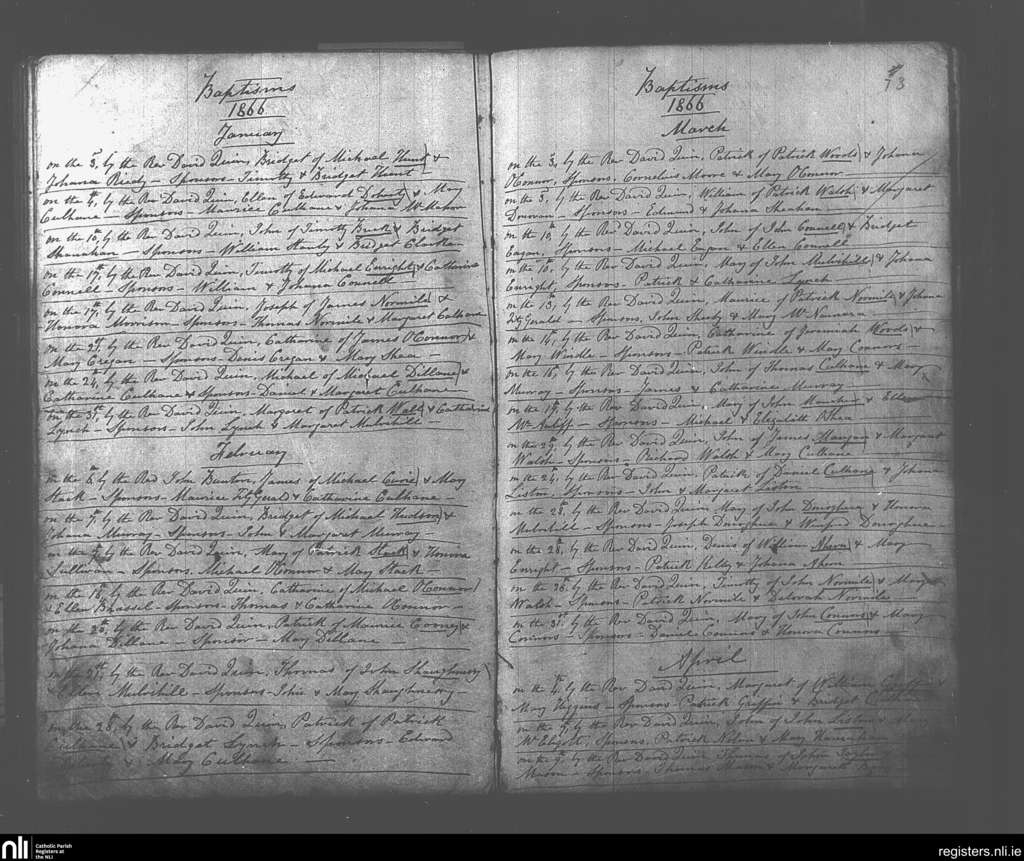 Baptisms
1866
January
on the 3, by the Rev David Quin, Bridget of Michael Hunt &
Johana Riedy - Sponsors - Timothy & Bridget Hunt
on the 4, by the Rev David Quin, Ellen of Edward Doherty & Mary
Culhane - Sponsors - Maurice Culhane & Johana McMahon
on the 10, by the Rev David Quin, John of Timothy & Bridget
Shanahan - Sponsors - William Hanly & Bridget
on the 17, by the Rev David Quin, Timothy of Michael Enright & Catharine
Connell Sponsors - William & Johana Connell
on the 17, by the Rev David Quin, Joseph of James Normile &
Honora Morrison - Sponsors - Thomas Normile & Margaret Culhane
on the 23, by the Rev David Quin, Catharine of James OConnor &
Mary Cregan - Sponsors - Denis Cregan & Mary Shea
on the 24, by the Rev David Quin, Michael of Michael Dillane &
Catharine Culhane & Sponsors - Daniel & Margaret Culhane
on the 31, by the Rev David Quin, Margaret of Patrick & Catharine
Lynch - Sponsors - John Lynch & Margaret Mulvihill
February
on the 6, by the Rev John Bunton, James of Michael & Mary
Stack - Sponsors - Maurice FitzGerald & Catharine Culhane
on the 7, by the Rev David Quin, Bridget of Michael Hudson &
Johana Murray - Sponsors - John & Margaret Murray
on the by the Rev David Quin, Mary of Patrick Stack & Honora
Sullivan - Sponsors. Michael OConnor & Mary Stack -
on the 18, by the Rev David Quin, Catharine of Michael OConnor
& Ellen Brassil - Sponsors - Thomas & Catharine OConnor -
on the 20, by the Rev David Quin, Patrick of Maurice &
Johana Dillane - Sponsor - Mary Dillane -
on the by the Rev David Quin, Thomas of John Shaughnessy
& Ellen Mulvihill - Sponsors - John & Mary Shaughnessy -
on the 28, by the Rev David Quin, Patrick of Patrick
Culhane & Bridget Lynch - Sponsors - Edward
& Mary Culhane -
73
Baptisms
1866
March
on the 3, by the Rev David Quin, Patrick of Patrick Woods & Johana
OConnor, Sponsors, Cornelius Moore & Mary OConnor
on the 3, by the Rev David Quin, William of Patrick Walsh & Margaret
Donovan - Sponsors - Edmund & Johana Sheahan
on the 10, by the Rev David Quin, John of John Connell & Bridget
Eagan, Sponsors - Michael & Ellen Connell
on the 10, by the Rev David Quin, Mary of John Mulvihill & Johana
Enright, Sponsors - Patrick & Catharine Lynch
on the 13, by the Rev David Quin, Maurice of Patrick Normile & Johana
FitzGerald - Sponsors, John Sheehy & Mary McNamara
on the 14, by the Rev David Quin, Catharine of Jeremiah Woods &
Mary Windle - Sponsors - Patrick Windle & Mary Connors -
on the 16, by the Rev David Quin, John of Thomas Culhane & Mary
Murray - Sponsors - James & Catharine Murray -
on the 19, by the Rev David Quin, Mary of John & Ellen
McAuliff - Sponsors - Michael & Elizabeth OShea
on the 24, by the Rev David Quin, John of James Mangan & Margaret
Walsh - Sponsors - Richard Walsh & Mary Culhane
on the 24, by the Rev David Quin, Patrick of Daniel Culhane & Johana
Liston, Sponsors - John & Margaret Liston
on the 28, by the Rev David Quin, Mary of John Donoghue & Honora
Mulvihill - Sponsors - Joseph Donoghue & Winifred Donoghue -
on the 28, by the Rev David Quin, Denis of William Ahern & Mary
Enright - Sponsors - Patrick Kelly & Johana Ahern
on the 30, by the Rev David Quin, Timothy of John Normile & Mary
Walsh - Sponsors - Patrick Normile & Deborah Normile
on the 31, by the Rev David Quin, Mary of John Connors & Mary
Connors - Sponsors - Daniel Connors & Honora Connors
April
on the 4, by the Rev David Quin, Margaret of William Griffin &
Mary Higgins - Sponsors - Patrick Griffin & Bridget
on the 7, by the Rev David Quin, John of John Liston & Mary
McEligott, Sponsors, Patrick Nolan & Mary Hanrahan
on the 9, by the Rev David Quin, Thomas of John
Mason - Sponsors Thomas Mason & Margaret
nli
Catholic Parish
Registers at
the NLI
registers.nli.ie